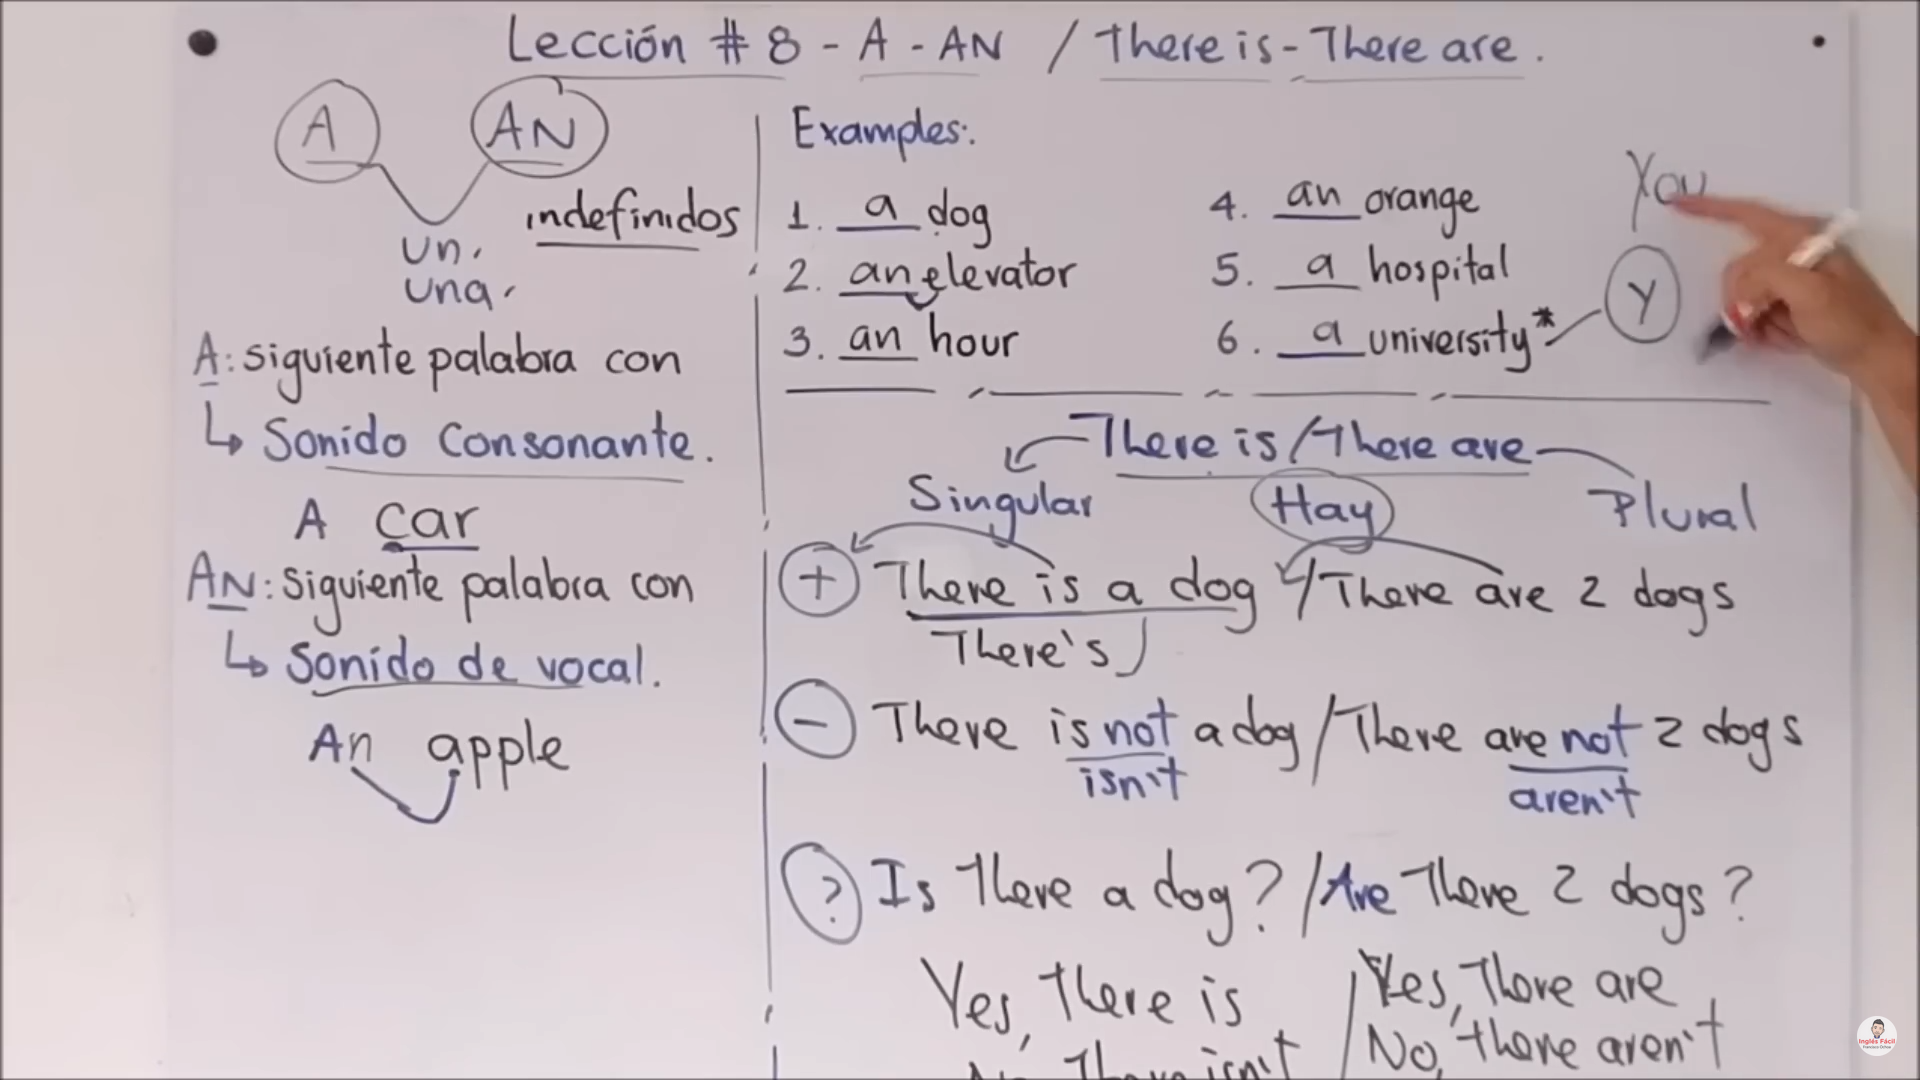 Lección # 8 - A - AN / There is - There are.
A AN
indefinidos
un.
una.
A: siguiente palabra con
↳ Sonido Consonante.
A car
AN: siguiente palabra con
↳ Sonido de vocal.
An apple
Examples:
1. a dog
2. an elevator
3. an hour
4. an orange
5. a hospital
6. a university*
You
Y
There is / There are
Singular Hay Plural
+ There is a dog / There are 2 dogs
There's
- There is not a dog / There are not 2 dogs
isn't aren't
? Is There a dog? / Are There 2 dogs?
Yes, There is / Yes, There are
No, There isn't / No, There aren't
Inglés Fácil